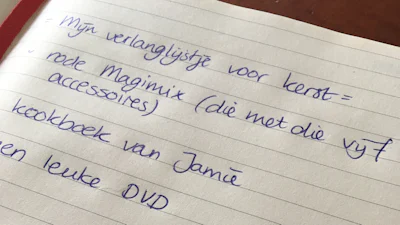 Mijn verlanglijstje voor kerst =
- rode Magimix (die met die vijf
accessoires)
kookboek van Jamie
een leuke DVD